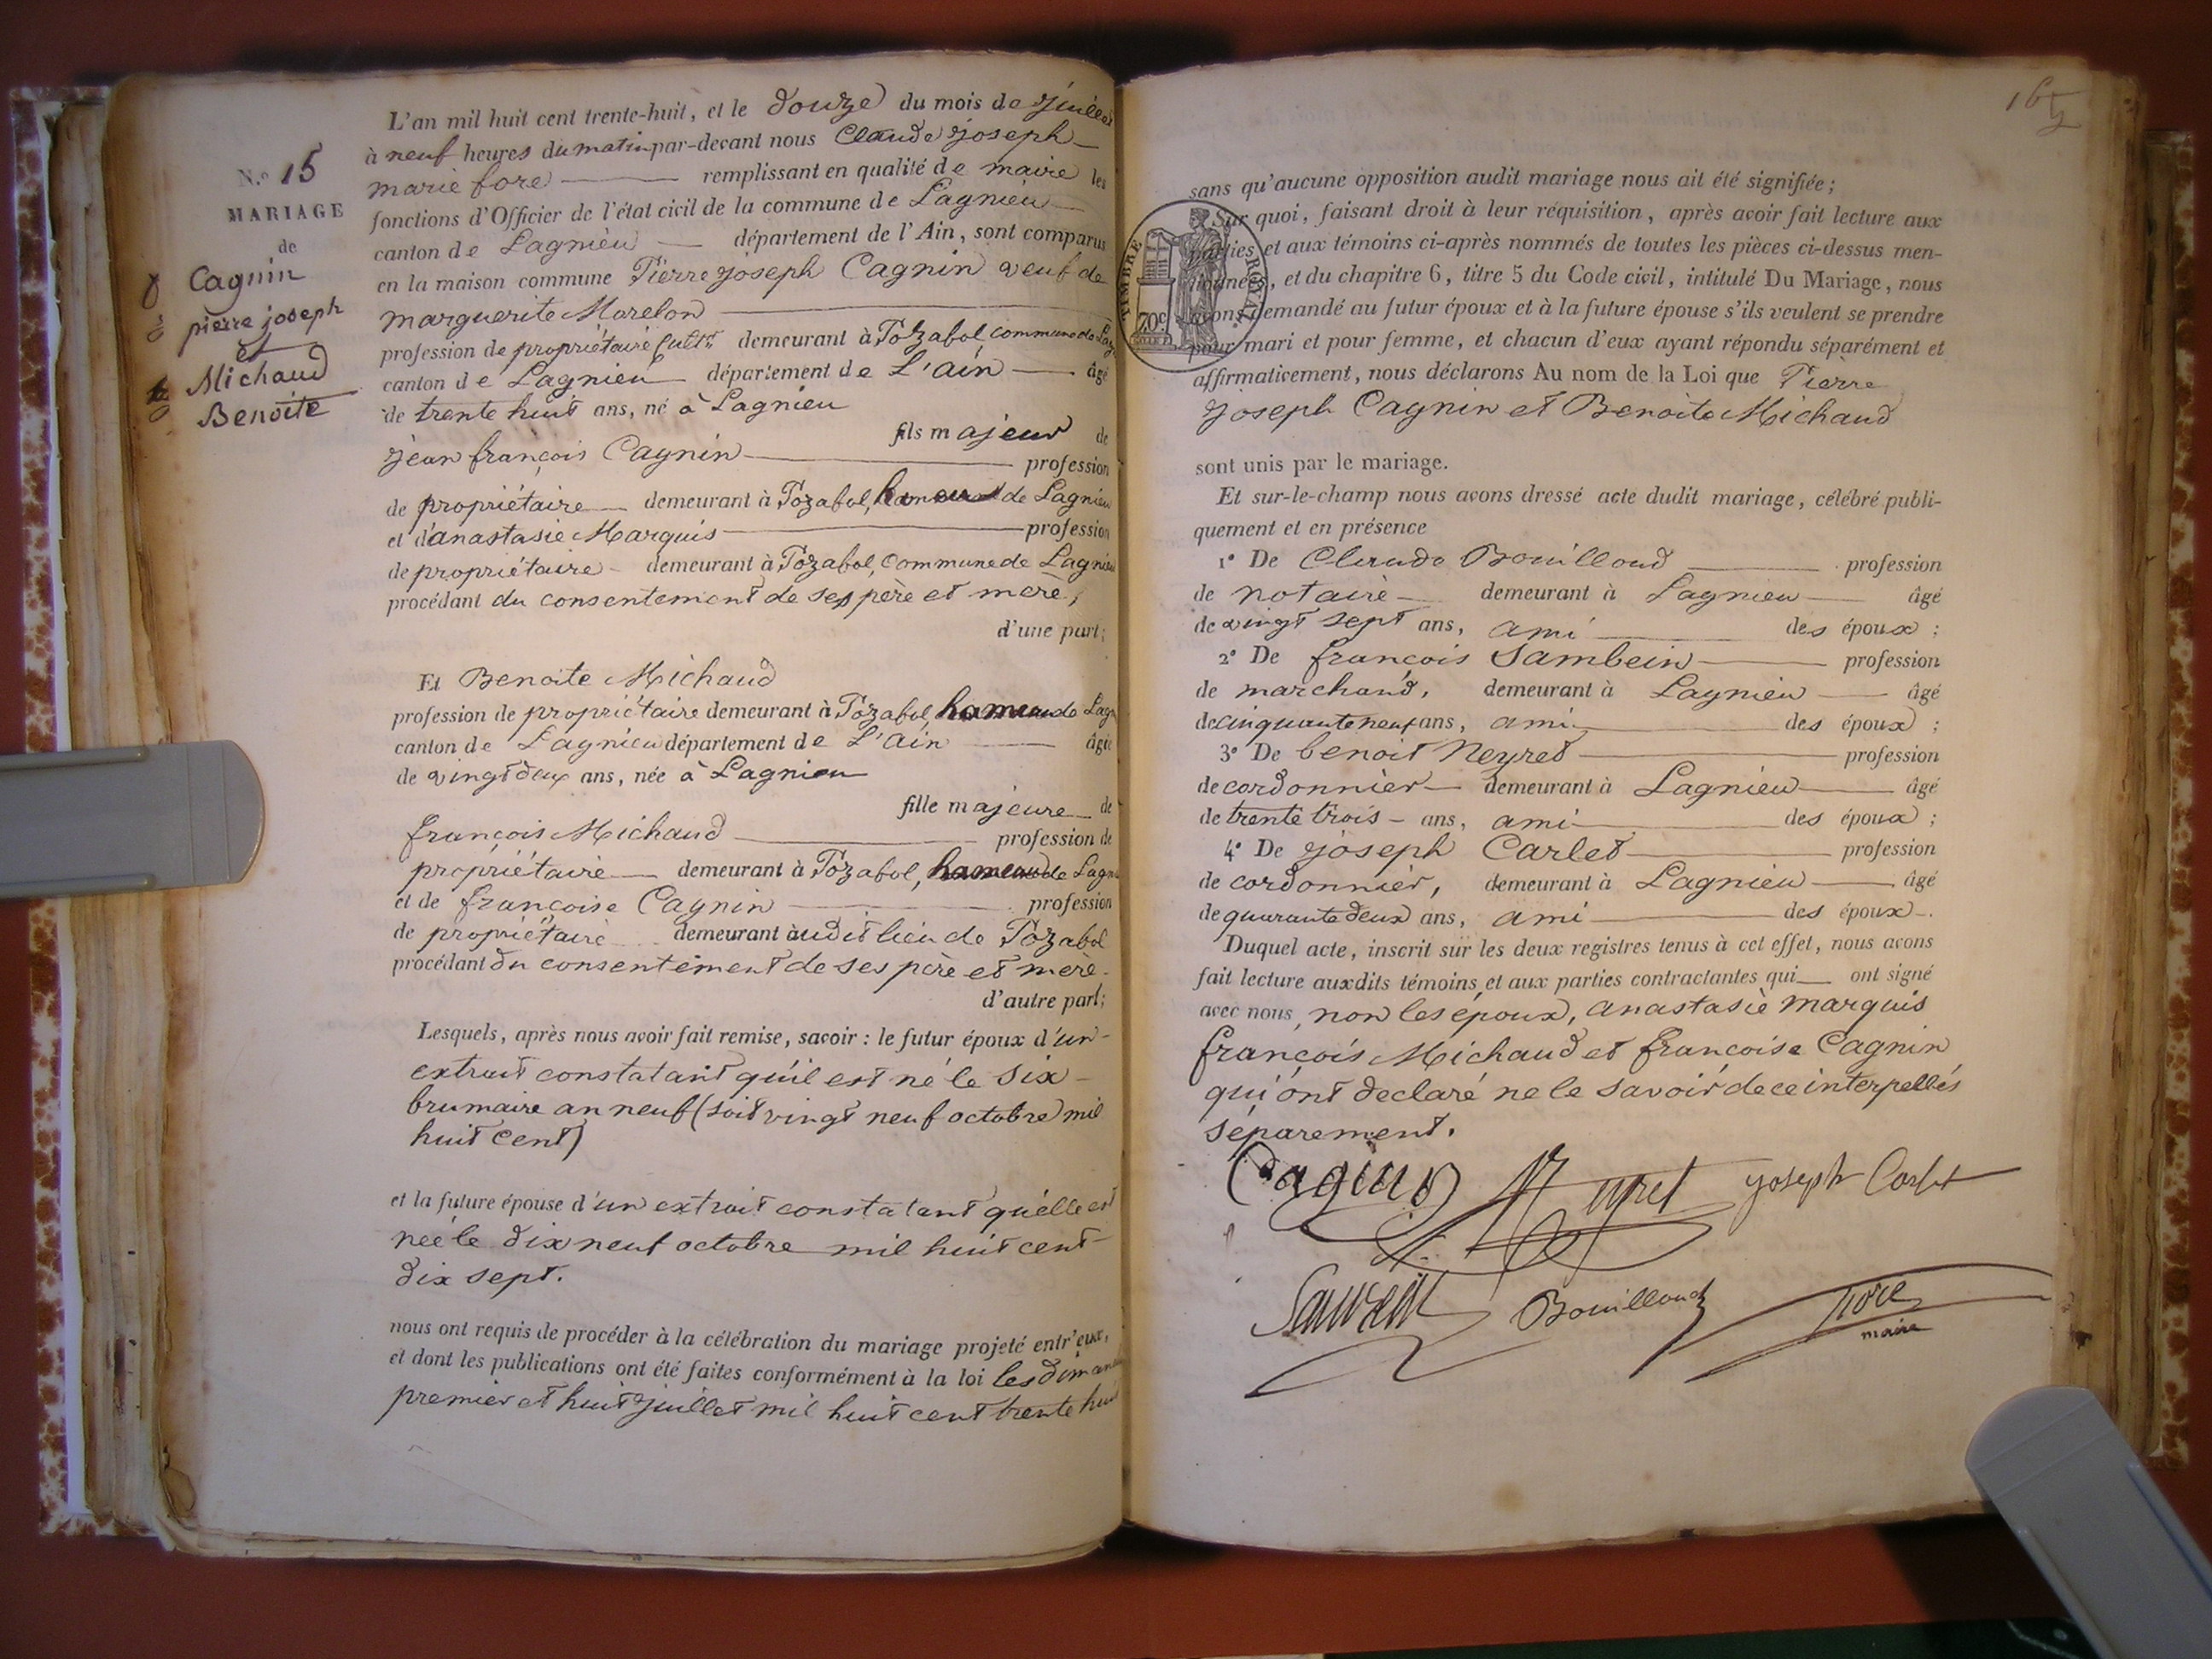 N.º 15
MARIAGE
de
Cagnin
pierre joseph
et
Michaud
Benoite
L'an mil huit cent trente-huit, et le douze du mois de juillet
à neuf heures du matin par-devant nous Claude joseph
marie fore remplissant en qualité de maire les
fonctions d'Officier de l'état civil de la commune de Lagnieu
canton de Lagnieu département de l'Ain, sont comparus
en la maison commune Pierre joseph Cagnin veuf de
marguerite Marelon
profession de propriétaire cultr demeurant à Pozafol, commune de Lag
canton de Lagnieu département de L'ain âgé
de trente huit ans, né à Lagnieu
fils majeur de
jean françois Cagnin profession
de propriétaire demeurant à Pozafol, hameau de Lagnieu
et d'anastasie Marquis profession
de propriétaire demeurant à Pozafol, commune de Lagnieu
procédant du consentement de ses père et mère,
d'une part;
Et Benoite Michaud
profession de propriétaire demeurant à Pozafol, hameau de Lagn
canton de Lagnieu département de L'ain âgée
de vingt deux ans, née à Lagnieu
fille majeure de
françois Michaud profession de
propriétaire demeurant à Pozafol, hameau de Lagn
et de françoise Cagnin profession
de propriétaire demeurant audit lieu de Pozafol
procédant du consentement de ses père et mère.
d'autre part;
Lesquels, après nous avoir fait remise, savoir : le futur époux d'un
extrait constatant qu'il est né le six
brumaire an neuf (soit vingt neuf octobre mil
huit cent)
et la future épouse d'un extrait constatant qu'elle est
née le dix neuf octobre mil huit cent
dix sept.
nous ont requis de procéder à la célébration du mariage projeté entr'eux,
et dont les publications ont été faites conformément à la loi les diman
premier et huit juillet mil huit cent trente huit
sans qu'aucune opposition audit mariage nous ait été signifiée;
Sur quoi, faisant droit à leur réquisition, après avoir fait lecture aux
parties et aux témoins ci-après nommés de toutes les pièces ci-dessus men-
tionnées, et du chapitre 6, titre 5 du Code civil, intitulé Du Mariage, nous
avons demandé au futur époux et à la future épouse s'ils veulent se prendre
pour mari et pour femme, et chacun d'eux ayant répondu séparément et
affirmativement, nous déclarons Au nom de la Loi que Pierre
joseph Cagnin et Benoite Michaud
TIMBRE ROYAL
70c
sont unis par le mariage.
Et sur-le-champ nous avons dressé acte dudit mariage, célébré publi-
quement et en présence
1º De Claude Bouilloud profession
de notaire demeurant à Lagnieu âgé
de vingt sept ans, ami des époux ;
2º De françois Sambein profession
de marchand, demeurant à Lagnieu âgé
de cinquante neuf ans, ami des époux ;
3º De benoit Neyret profession
de cordonnier demeurant à Lagnieu âgé
de trente trois ans, ami des époux ;
4º De joseph Carlet profession
de cordonnier, demeurant à Lagnieu âgé
de quarante deux ans, ami des époux.
Duquel acte, inscrit sur les deux registres tenus à cet effet, nous avons
fait lecture auxdits témoins et aux parties contractantes qui ont signé
avec nous, non les époux, anastasie marquis
françois Michaud et françoise Cagnin
qui ont declaré ne le savoir de ce interpellés
séparement.
Cagnin Neyret joseph Carlet
Bouilloud fore
maire